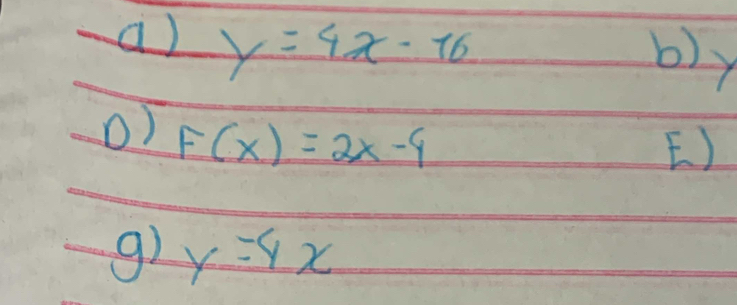 a) y = 4x - 16 b) y
D) F(x) = 2x - 4 E)
g) y = 4x